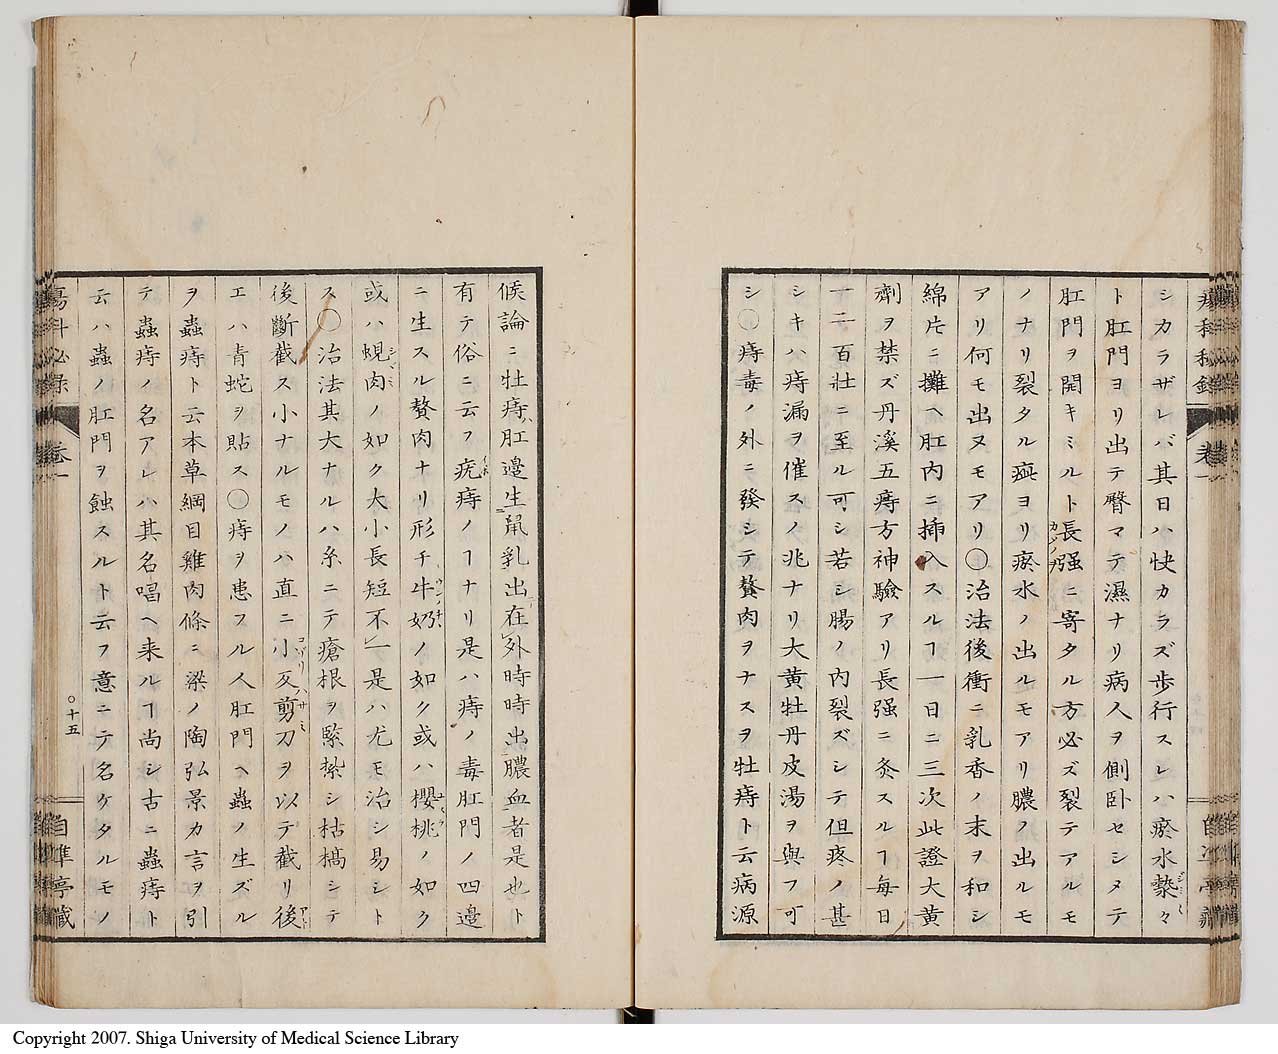 シカラザレバ其日ハ快カラズ歩行スレハ瘀水漐々
ト肛門ヨリ出テ臀マテ濕ナリ病人ヲ側卧セシメテ
肛門ヲ開キミルト長强ニ寄タル方必ズ裂テアルモ
ノナリ裂タル㾏ヨリ瘀水ノ出ルモアリ膿ノ出ルモ
アリ何モ出ヌモアリ○治法後衝ニ乳香ノ末ヲ和シ
綿片ニ攤ヘ肛内ニ挿入スルヿ一日ニ三次此證大黄
劑ヲ禁ズ丹溪五痔方神驗アリ長强ニ灸スルヿ每日
一二百壮ニ至ル可シ若シ腸ノ内裂ズシテ但疼ノ甚
シキハ痔漏ヲ催スノ兆ナリ大黄牡丹皮湯ヲ與フ可
シ○痔毒ノ外ニ發シテ贅肉ヲナスヲ牡痔ト云病源
候論ニ牡痔ハ肛邉生鼠乳出在外時時出膿血者是也ト
有テ俗ニ云フ疣痔ノヿナリ是ハ痔ノ毒肛門ノ四邉
ニ生スル贅肉ナリ形チ牛奶ノ如ク或ハ櫻桃ノ如ク
或ハ蜆肉ノ如ク大小長短不一是ハ尤モ治シ易シト
ス○治法其大ナルハ糸ニテ瘡根ヲ緊紮シ枯槁シテ
後斷截ス小ナルモノハ直ニ小反剪刀ヲ以テ截リ後
エハ青蛇ヲ貼ス○痔ヲ患フル人肛門ヘ蟲ノ生ズル
ヲ蟲痔ト云本草綱目雞肉條ニ梁ノ陶弘景カ言ヲ引
テ蟲痔ノ名アレハ其名唱ヘ来ルヿ尚シ古ニ蟲痔ト
云ハ蟲ノ肛門ヲ蝕スルト云フ意ニテ名ケタルモノ
瘍科秘録 卷一
○十五
自準亭藏
Copyright 2007. Shiga University of Medical Science Library